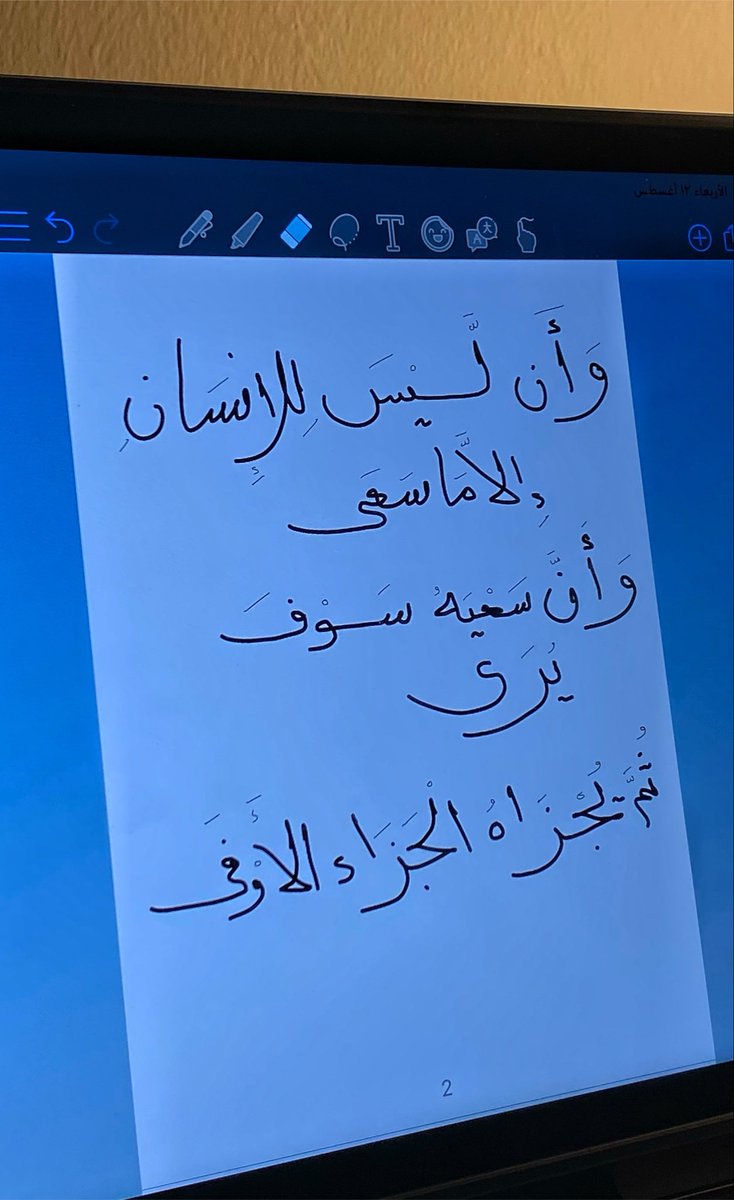 الأربعاء ١٢ أغسطس
وَأَن لَّيْسَ لِلإِنسَانِ
إِلاَّ مَا سَعَى
وَأَنَّ سَعْيَهُ سَوْفَ
يُرَى
ثُمَّ يُجْزَاهُ الْجَزَاء الأَوْفَى
2